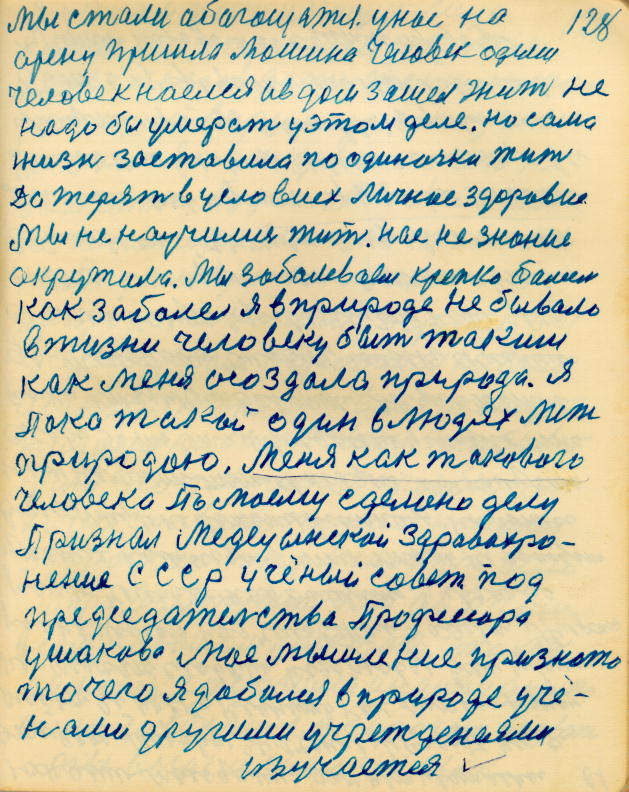 мы стали абагощятся. унас на 128
арену пришла машина человек одели
человек наелся ив дом зашел жит не
надо бы умерат уэтом деле. но сама
жизн заставила по одиночки жит
Да терят в условиех личное здоровие
Мы не научилис жит. нас не знание
окружила. Мы заболеваем крепко балеем
как заболел я в природе не бывало
в жизни человеку быт таким
как меня создала природа. я
пака такой один в людях меж
природаю. Меня как такового
человека по моему сделоно делу
Признал Медецынской Здравоохро-
нение СССР учёный совет под
председателства Професора
ушакова Мое мышление признато
то чего я добился в природе учё-
нами другими учреждениями
изучается